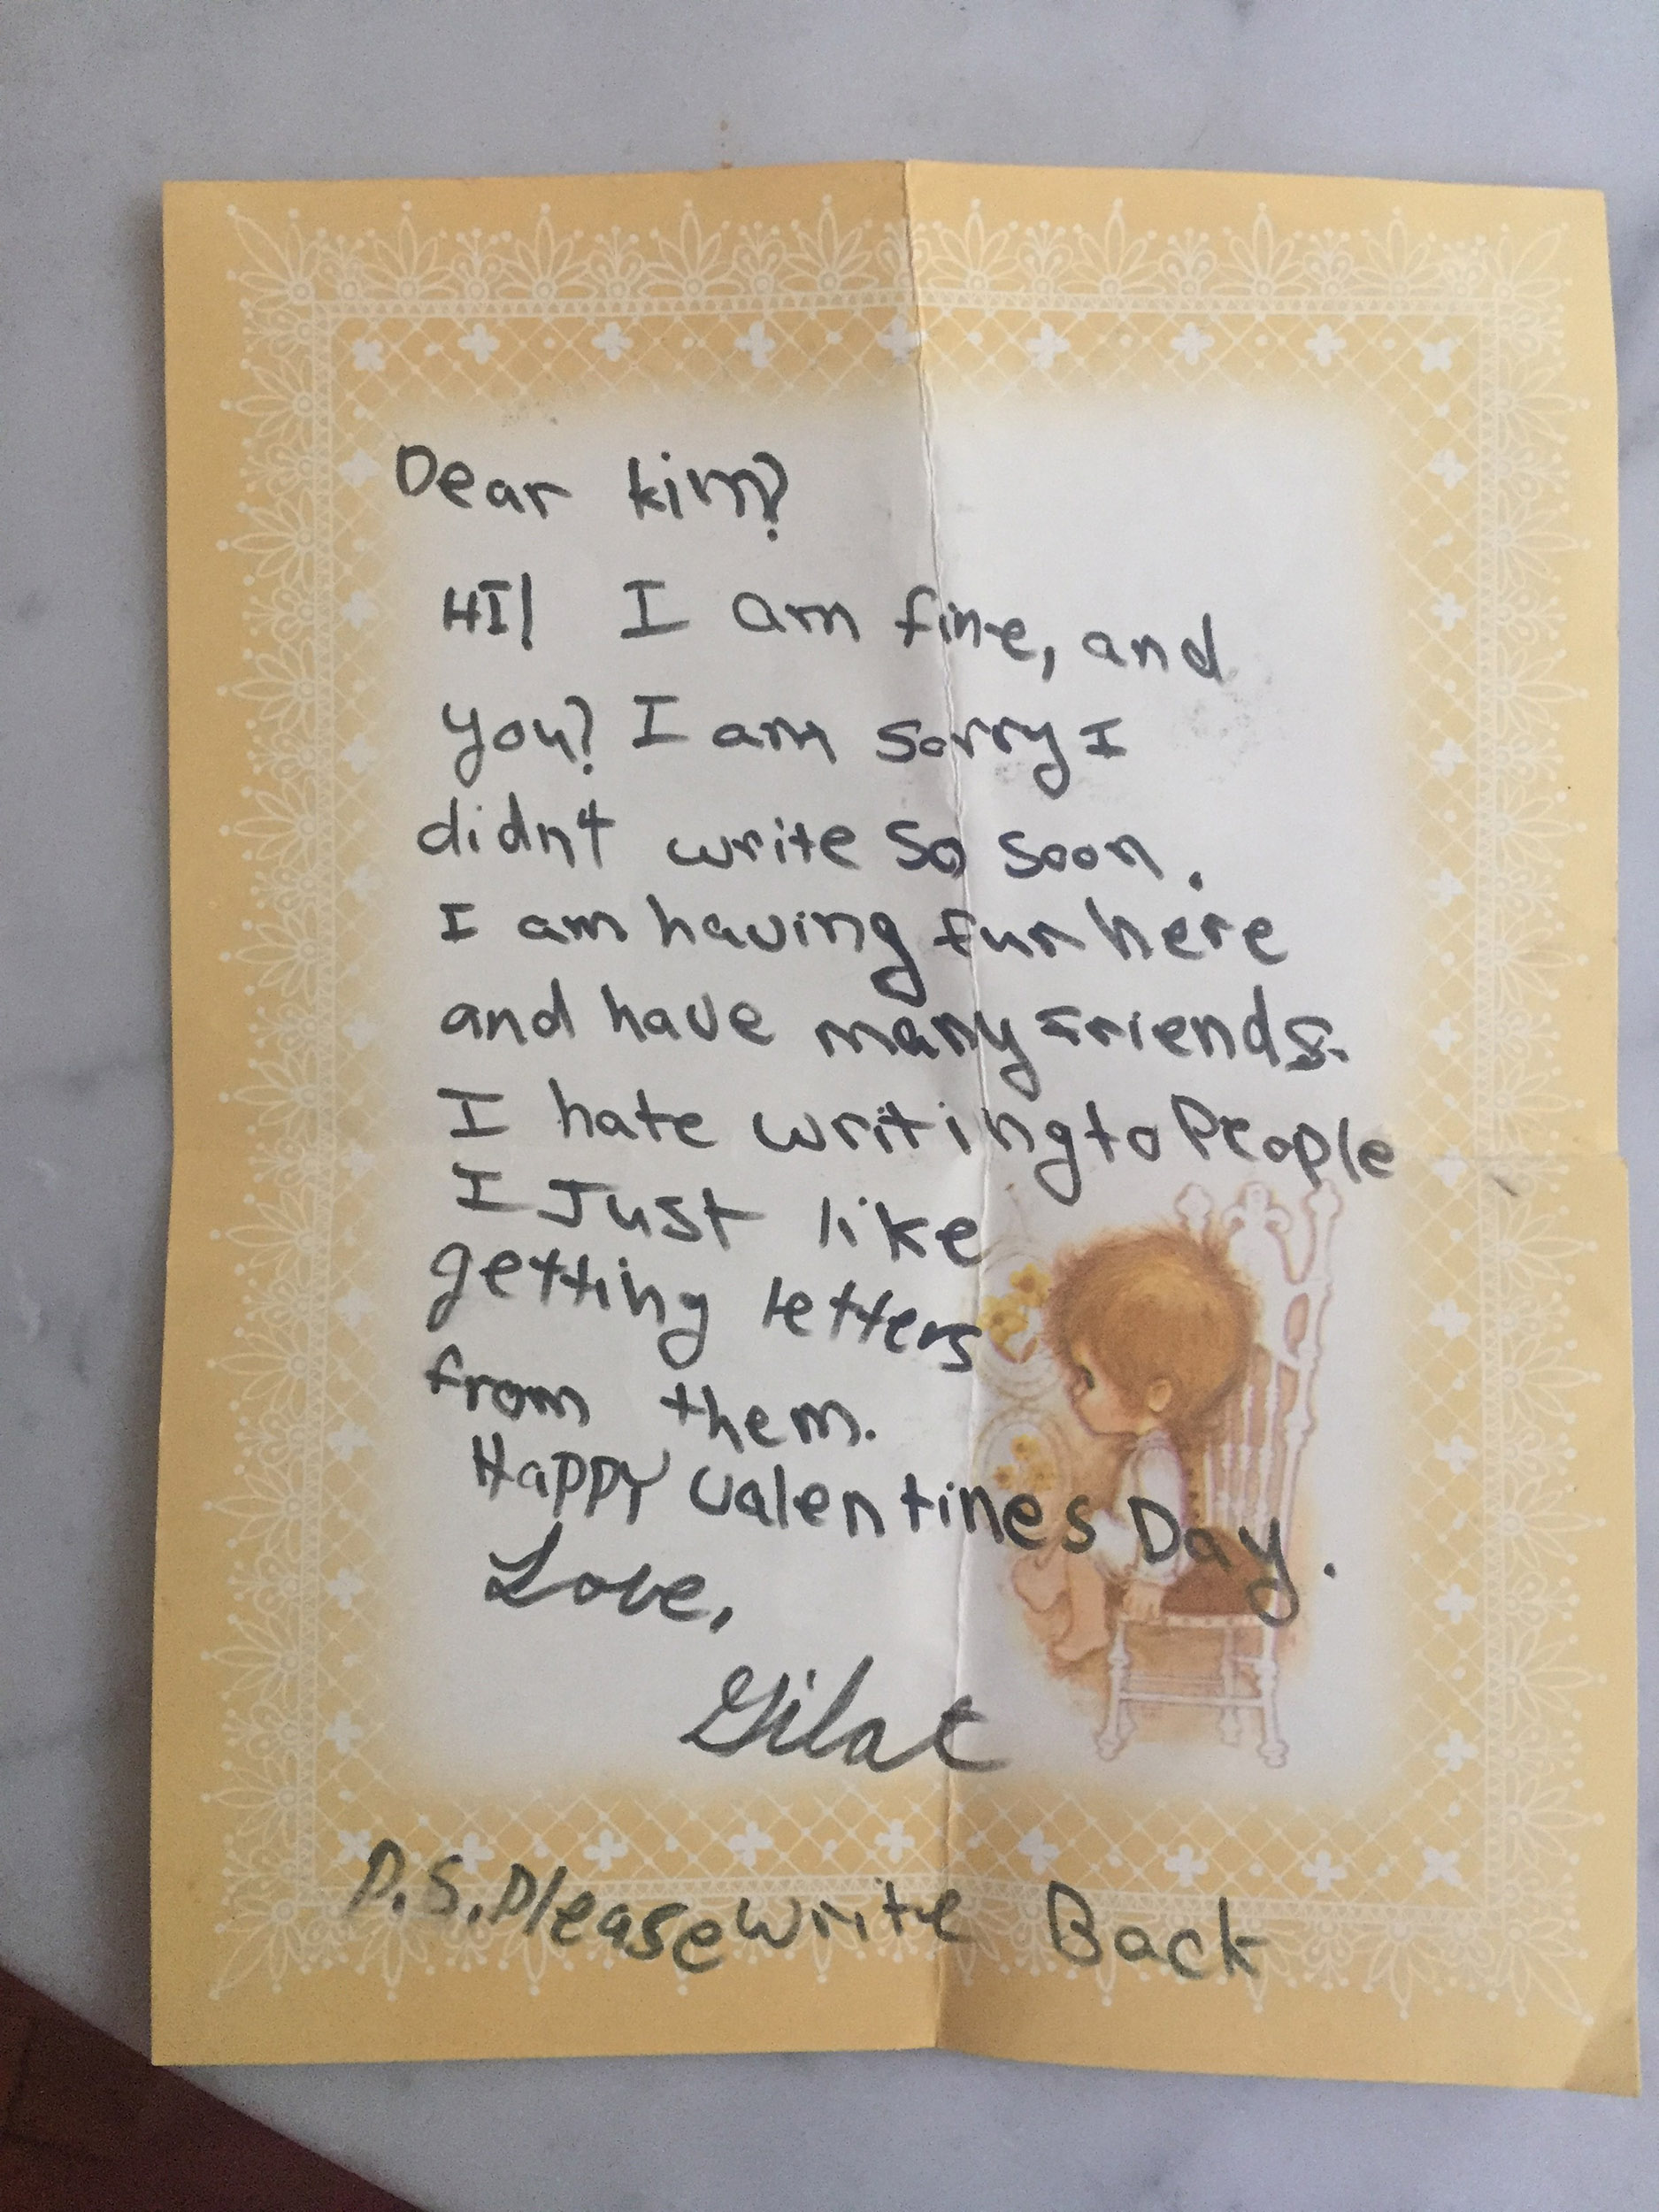 Dear kim?
HI! I am fine, and
you? I am sorry I
didnt write so soon.
I am having fun here
and have many friends.
I hate writing to People
I Just like
getting letters
from them.
Happy valentines Day.
Love,
Gilat
P.S. Please write Back